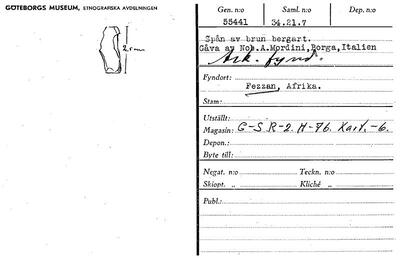 GÖTEBORGS MUSEUM, ETNOGRAFISKA AVDELNINGEN
2,5 cm
Gen. n:o Saml. n:o Dep. n:o
55441 34.21.7
Spån av brun bergart.
Gåva av Nob.A.Mordini,Borga,Italien
Ark. fynd.
Fyndort:
Fezzan, Afrika.
Stam:
Utställt:
Magasin: G-S R-2. H-76. Kart.-6.
Depon.:
Byte till:
Negat. n:o Teckn. n:o
Skiopt. „ Kliché „
Publ.: